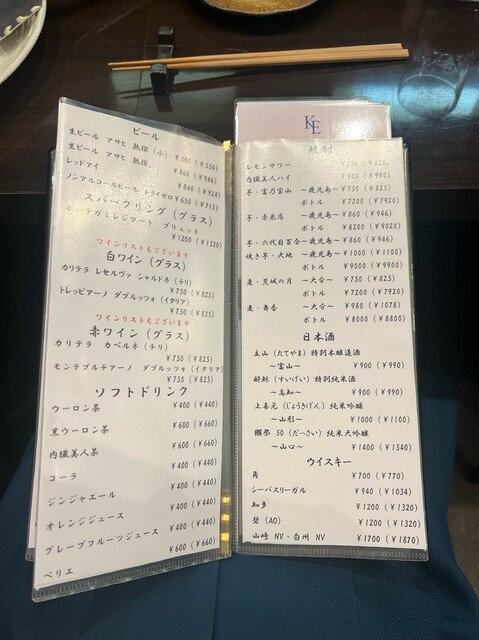 ビール
生ビール アサヒ 熟撰 (小) ¥500 (¥550)
生ビール アサヒ 熟撰 ¥860 (¥946)
レッドアイ ¥840 (¥924)
ノンアルコールビール ドライゼロ ¥650 (¥715)
スパークリング (グラス)
ラガミレジマート ブリュット
¥1200 (¥1320)
ワインリストもございます
白ワイン (グラス)
カリテラ レセルヴァ シャルドネ (チリ)
¥750 (¥825)
トレッビアーノ ダブルッツォ (イタリア)
¥750 (¥825)
ワインリストもございます
赤ワイン (グラス)
カリテラ カベルネ (チリ)
¥750 (¥825)
モンテプルチアーノ ダブルッツォ (イタリア)
¥750 (¥825)
ソフトドリンク
ウーロン茶 ¥400 (¥440)
黒ウーロン茶 ¥600 (¥660)
内臓美人茶 ¥600 (¥660)
コーラ ¥400 (¥440)
ジンジャエール ¥400 (¥440)
オレンジジュース ¥400 (¥440)
グレープフルーツジュース ¥400 (¥440)
ペリエ ¥600 (¥660)
KE
焼酎
レモンサワー ¥750 (¥825)
内臓美人ハイ ¥900 (¥990)
芋・富乃宝山 ～鹿児島～ ¥750 (¥825)
ボトル ¥7200 (¥7920)
芋・赤兎馬 ～鹿児島～ ¥860 (¥946)
ボトル ¥8200 (¥9020)
芋・六代目百合 ～鹿児島～ ¥860 (¥946)
焼き芋・大地 ～鹿児島～ ¥1000 (¥1100)
ボトル ¥9000 (¥9900)
麦・茨城の月 ～大分～ ¥750 (¥825)
ボトル ¥7200 (¥7920)
麦・舞香 ～大分～ ¥980 (¥1078)
ボトル ¥8000 (¥8800)
日本酒
立山 (たてやま) 特別本醸造酒
～富山～ ¥900 (¥990)
酔鯨 (すいげい) 特別純米酒
～高知～ ¥900 (¥990)
上喜元 (じょうきげん) 純米吟醸
～山形～ ¥1000 (¥1100)
獺祭 50 (だっさい) 純米大吟醸
～山口～ ¥1400 (¥1540)
ウイスキー
角 ¥700 (¥770)
シーバスリーガル ¥940 (¥1034)
知多 ¥1200 (¥1320)
碧 (AO) ¥1200 (¥1320)
山崎 NV・白州 NV ¥1700 (¥1870)